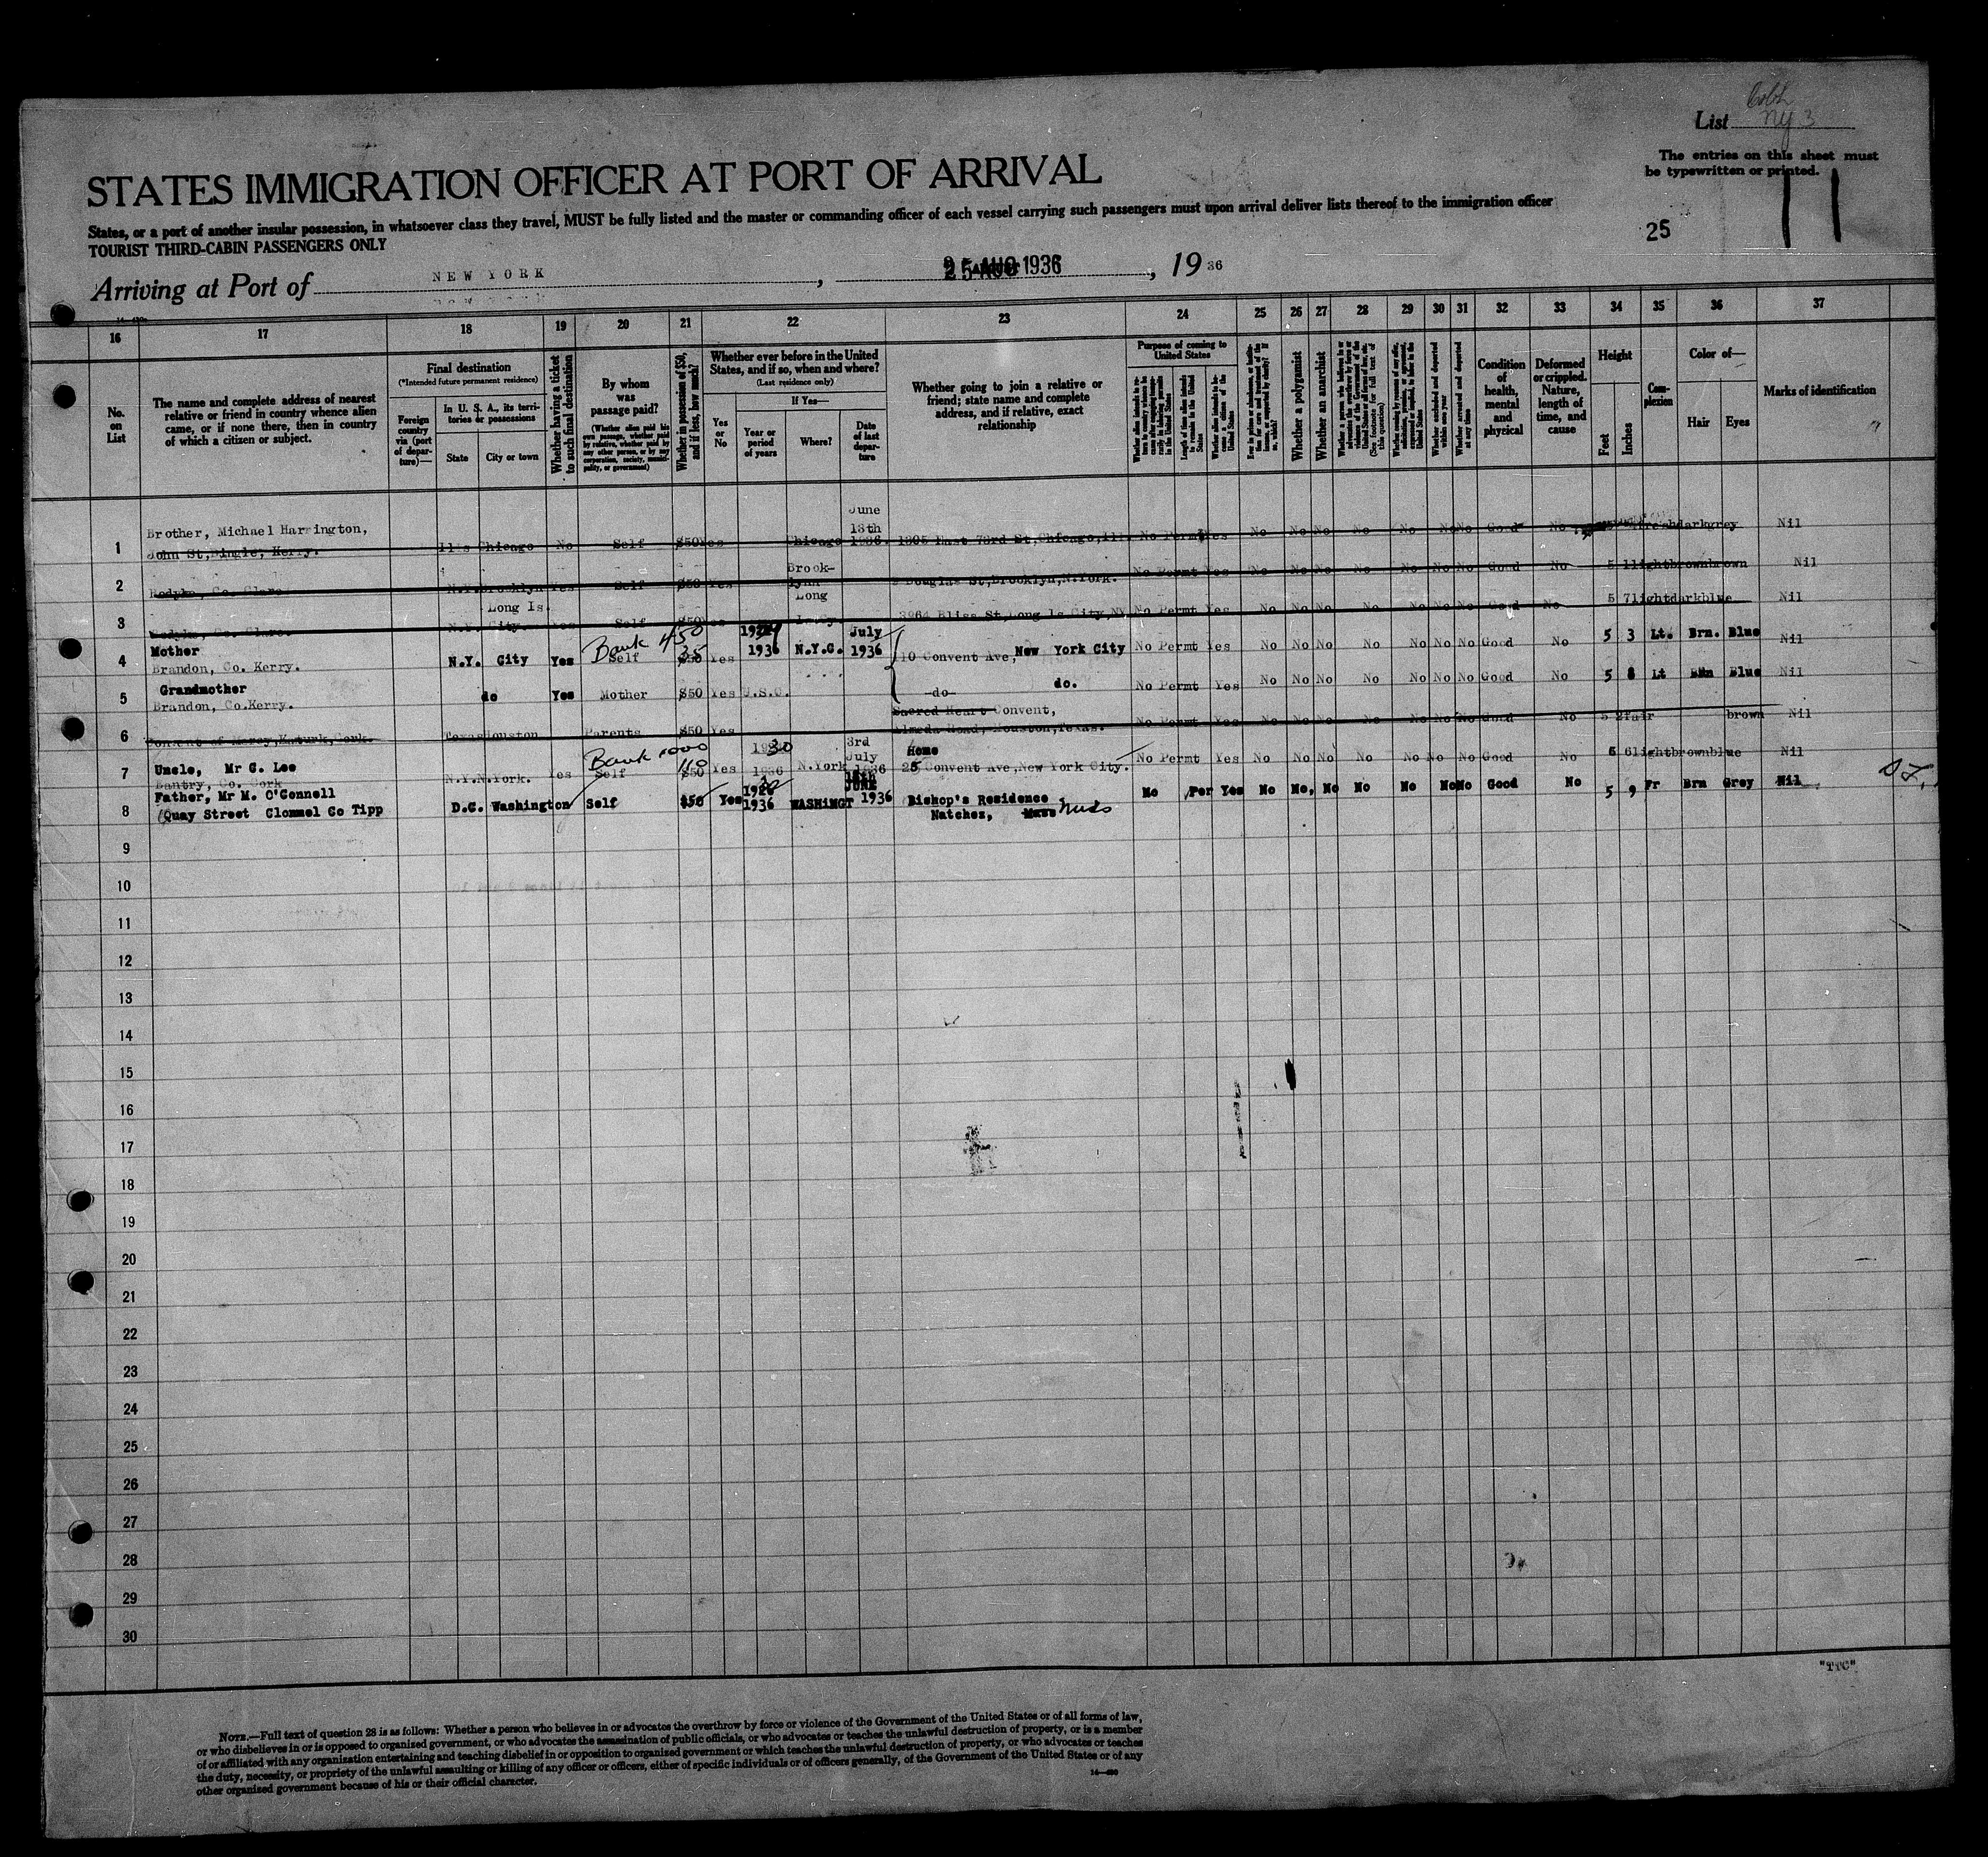 Cobh
List NY 3
The entries on this sheet must
be typewritten or printed.
STATES IMMIGRATION OFFICER AT PORT OF ARRIVAL
States, or a port of another insular possession, in whatsoever class they travel, MUST be fully listed and the master or commanding officer of each vessel carrying such passengers must upon arrival deliver lists thereof to the immigration officer
TOURIST THIRD-CABIN PASSENGERS ONLY
25
11
Arriving at Port of NEW YORK, 25 AUG 1936, 1936
16 17 18 19 20 21 22 23 24 25 26 27 28 29 30 31 32 33 34 35 36 37
No. on List
The name and complete address of nearest
relative or friend in country whence alien
came, or if none there, then in country
of which a citizen or subject.
Final destination
(*Intended future permanent residence)
Foreign country via (port of departure)—
In U. S. A., its territories or possessions
State
City or town
Whether having a ticket to such final destination
By whom was passage paid?
(Whether alien paid his own passage, whether paid by relative, whether paid by any other person, or by any corporation, society, municipality, or government)
Whether in possession of $50, and if less, how much?
Whether ever before in the United
States, and if so, when and where?
(Last residence only)
If Yes—
Yes or No
Year or period of years
Where?
Date of last departure
Whether going to join a relative or
friend; state name and complete
address, and if relative, exact
relationship
Purpose of coming to United States
Length of time alien intends to remain in the United States
Whether alien intends to become a citizen of the United States
Whether a polygamist
Whether an anarchist
Whether excluded and deported within one year
Whether arrested and deported at any time
Condition of health, mental and physical
Deformed or crippled. Nature, length of time, and cause
Height
Feet
Inches
Complexion
Color of—
Hair
Eyes
Marks of identification
1 Brother, Michael Harrington,
John St, Dingle, Kerry. Ills Chicago No Self $50 Yes Chicago June 13th 1936. 1805 East 73rd St, Chicago, Ill. No Permt Yes No No No No No No No Good No fresh dark grey Nil
2 Bodyke, Co. Clare N.Y. Brooklyn Yes Self $50 Yes Brooklynn Douglas St, Brooklyn, N.York. No Permt Yes No No No No No No No Good No 5 1 light brown brown Nil
3 Bodyke, Co. Clare. N.Y. Long Is. City. Yes Self $50 Yes Long Is.Cy. 3964 Bliss St, Long Is City, NY No Permt Yes No No No No No No No Good No 5 7 light dark blue Nil
4 Mother
Brandon, Co. Kerry. N.Y. City Yes Bank 450 Self 35 $50 Yes 1936 N.Y.C. July 1936 110 Convent Ave, New York City No Permt Yes No No No No No No No Good No 5 3 Lt. Brn. Blue Nil
5 Grandmother
Brandon, Co.Kerry. do Yes Mother $50 Yes U.S.C. -do- do. No Permt Yes No No No No No No No Good No 5 8 Lt Brn Blue Nil
6 Convent of Mercy, Kanturk, Cork. Texas Houston Parents $50 Yes Sacred Heart Convent,
Almeda Road, Houston, Texas. No Permt Yes No No No No No No No Good No 5 2 fair brown Nil
7 Uncle, Mr C. Lee
Bantry, Co. Cork N.Y. N.York. Yes Bank 1000 Self 110 $50 Yes 1930 1936 N.York 3rd July 1936 Home
25 Convent Ave, New York City. No Permt Yes No No No No No No No Good No 5 6 light brown blue Nil
8 Father, Mr M. O'Connell
Quay Street Clonmel Co Tipp D.C. Washington Self $50 Yes 1936 WASHINGT JUNE 1936 Bishop's Residence
Natchez, Mass Miss No Per Yes No No, No No No No No Good No 5 9 Fr Brn Grey Nil
9
10
11
12
13
14
15
16
17
18
19
20
21
22
23
24
25
26
27
28
29
30
"TTC"
NOTE.—Full text of question 28 is as follows: Whether a person who believes in or advocates the overthrow by force or violence of the Government of the United States or of all forms of law,
or who disbelieves in or is opposed to organized government, or who advocates the assassination of public officials, or who advocates or teaches the unlawful destruction of property, or is a member
of or affiliated with any organization entertaining and teaching disbelief in or opposition to organized government or which teaches the unlawful destruction of property, or who advocates or teaches
the duty, necessity, or propriety of the unlawful assaulting or killing of any officer or officers, either of specific individuals or of officers generally, of the Government of the United States or of any
other organized government because of his or their official character.